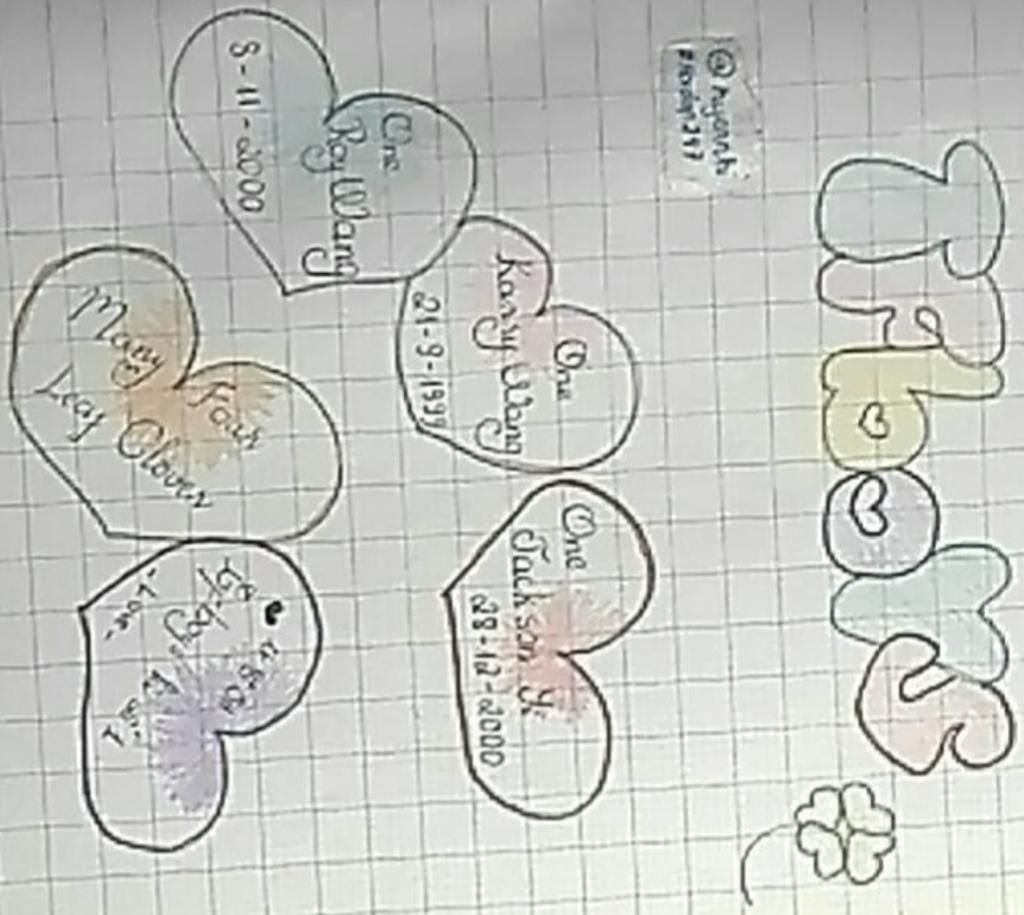 TFboys
One
Roy Wang
8-11-2000
One
Karry Wang
21-9-1999
One
Jackson Yi
28-12-2000
Many Four
Leaf Clover
- Love -